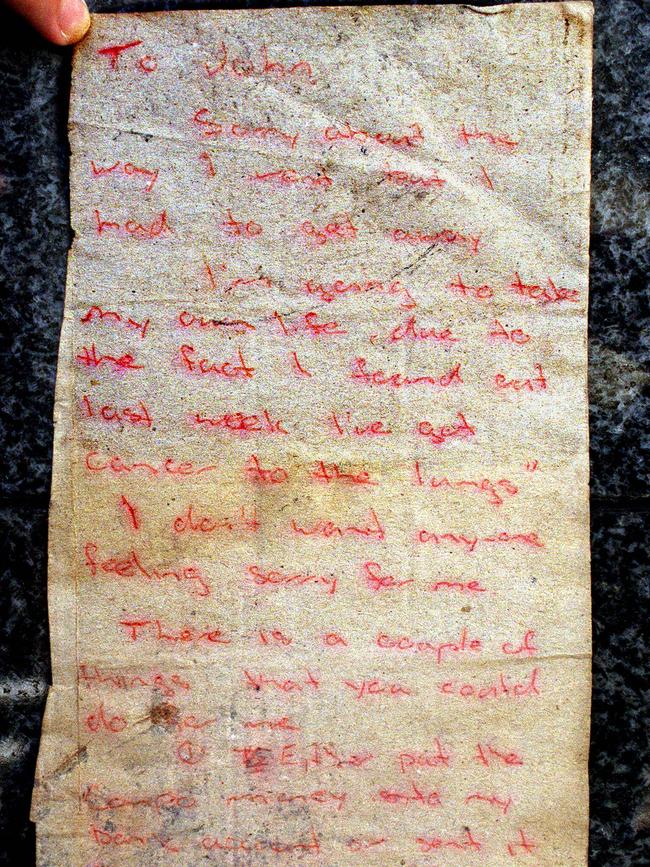 To John
Sorry about the
way I went but I
had to get away
I'm going to take
my own life, due to
the fact I found out
last week I've got
cancer to the lungs"
I don't want anyone
feeling sorry for me
There is a couple of
things that you could
do for me
① Either put the
money into my
bank account or send it